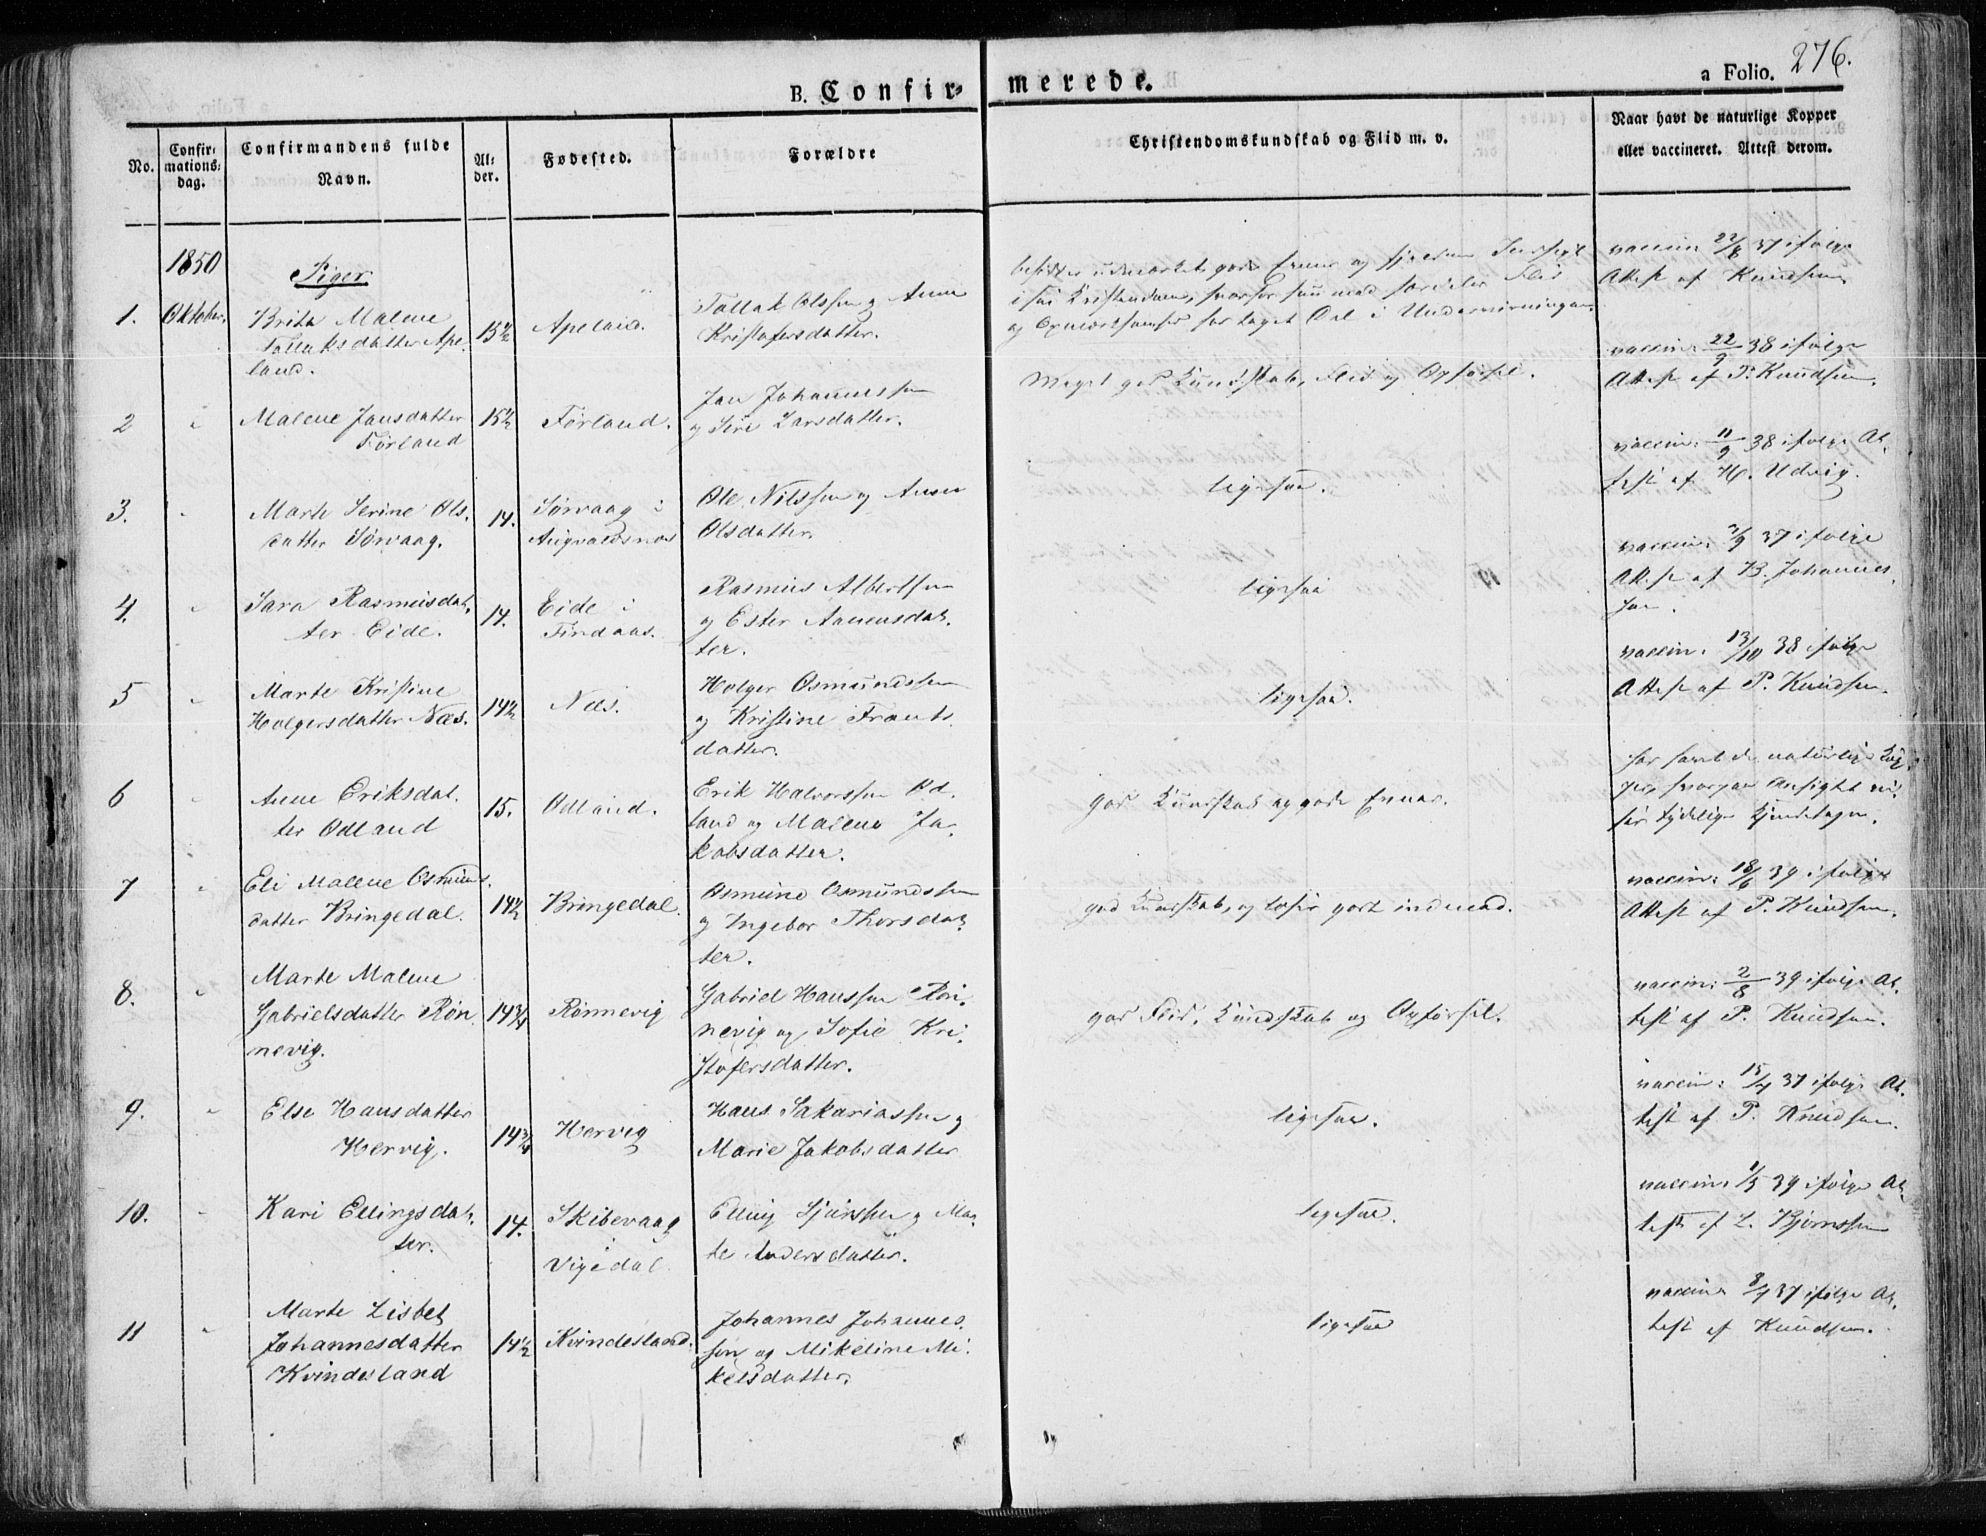 B. Confirmerede.
a Folio. 276.
No.
Confirmationsdag.
Confirmandens fulde Navn.
Alder.
Fødested.
Forældre
Christendomskundskab og Flid m. v.
Naar havt de naturlige Kopper
eller vaccineret. Attest derom.
1850
Piger
1. Oktober. Brita Malene
Tollaksdatter Ape-
land.
15½
Apeland.
Tollak Olssen og Anne
Kristofersdatter.
besidder udmærket gode Evner og
i sin Kristendom, hvorfor hun med særdeles Flid
og Opmærksomhed har taget Del i Undervisningen.
vaccin: 22/8 37 ifølge
Attest af Knudsen.
2 " Malene Jansdatter
Førland
15½
Førland.
Jan Johannessen
og Siri Larsdatter.
Meget god Kundskab, Flid og Opførsel.
vaccin: 22/9 38 ifølge
Attest af P. Knudsen.
3. " Marte Serine Ols-
datter Sørvaag.
14.
Sørvaag i
Augvaldsnes
Ole Nilssen og Anne
Olsdatter.
ligesaa.
vaccin: 11/9 38 ifølge At-
test af H. Udvig.
4. " Sara Rasmusdat-
ter Eide.
14.
Eide i
Findaas.
Rasmus Albertsen
og Ester Aamunsdat-
ter.
ligesaa
vaccin: 2/9 37 ifølge
Attest af B. Johannes-
sen.
5 " Marte Kristine
Holgersdatter Næs.
14½
Næs.
Holger Osmundssen
og Kristine Frants-
datter.
ligesaa.
vaccin. 13/10 38 ifølge
Attest af P. Knudsen.
6 " Anne Eriksdat-
ter Odland
15.
Odland.
Erik Halvorssen Od-
land og Malene Ja-
kobsdatter.
god Kundskab og gode Evner.
har havt de naturlige Kop-
per, hvorpaa Ansigtet
tydelige Kjendetegn.
7 " Eli Malene Osmunds-
datter Bringedal.
14½
Bringedal.
Osmund Osmundssen
og Ingebor Thorsdat-
ter.
god Kundskab, og læser godt indenad.
vaccin: 18/6 39 ifølge
Attest af P. Knudsen.
8. " Marte Malene
Gabrielsdatter Røn-
nevig.
14¾
Rønnevig
Gabriel Hanssen Røn-
nevig og Sofie Kri-
stofersdatter.
god Flid, Kundskab og Opførsel.
vaccin: 2/8 39 ifølge At-
test af P. Knudsen.
9. " Else Hansdatter
Hervig.
14¾
Hervig
Hans Sakariassen og
Marie Jakobsdatter
ligesaa.
vaccin: 15/7 37 ifølge At-
test af P. Knudsen.
10. " Kari Ellingsdat-
ter.
14.
Skibevaag
i
Vigedal.
Elling Sjurssen og Mar-
te Andersdatter.
ligesaa.
vaccin: 1/5 39 ifølge At-
test af L. Bjørnssen
11 " Marte Lisbet
Johannesdatter
Kvindesland
14½
Kvindesland.
Johannes Johannes-
sen og Mikeline Mi-
kelsdatter.
ligesaa
vaccin: 8/7 37 ifølge At-
test af Knudsen.